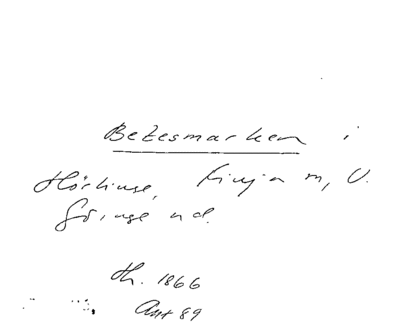 Betesmarken i
Hörlinge, Finja m, V.
Göinge hd.
Th. 1866
Ant 89